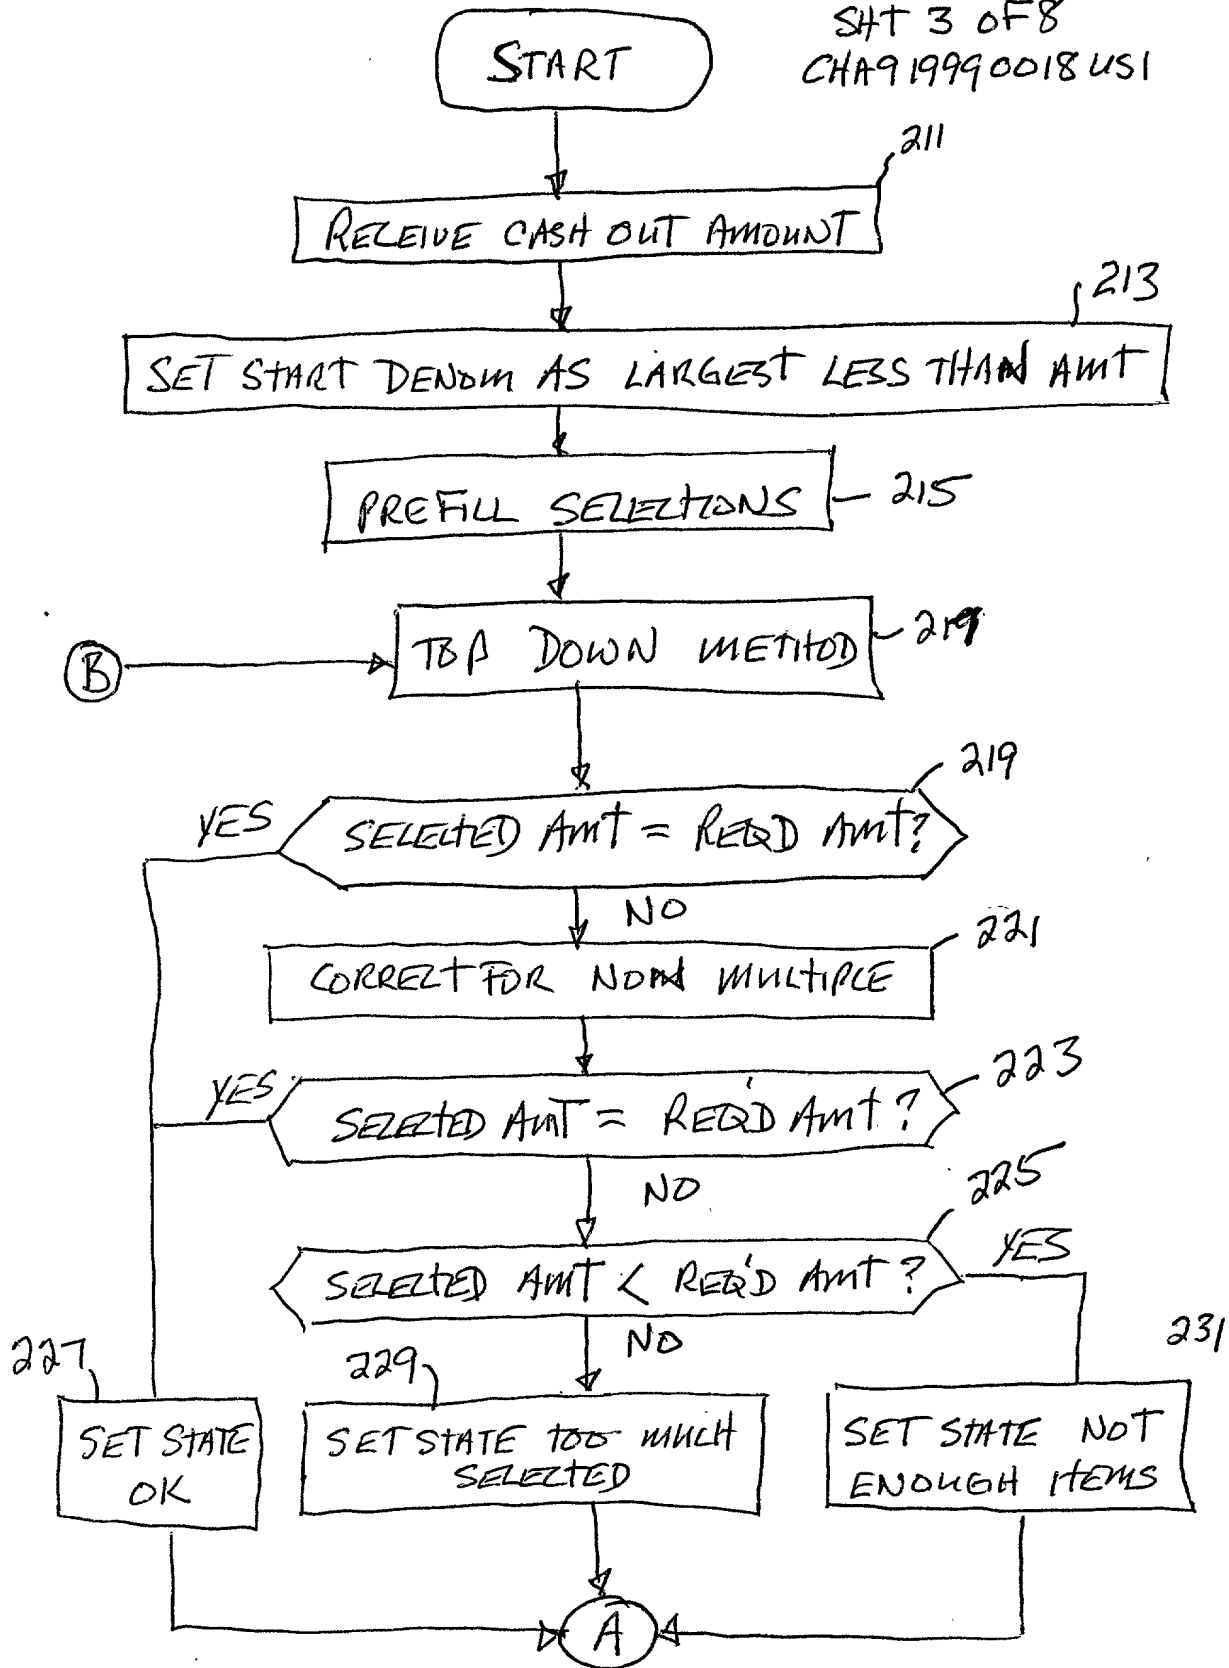 SHT 3 OF 8
CHA919990018US1
START
211
RECEIVE CASH OUT AMOUNT
213
SET START DENOM AS LARGEST LESS THAN AMT
PREFILL SELECTIONS
215
B
TOP DOWN METHOD
219
219
YES
SELECTED AMT = REQD AMT?
NO
221
CORRECT FOR NON MULTIPLE
223
YES
SELECTED AMT = REQ'D AMT?
NO
225
YES
SELECTED AMT < REQ'D AMT?
NO
227
229
231
SET STATE
OK
SET STATE TOO MUCH
SELECTED
SET STATE NOT
ENOUGH ITEMS
A